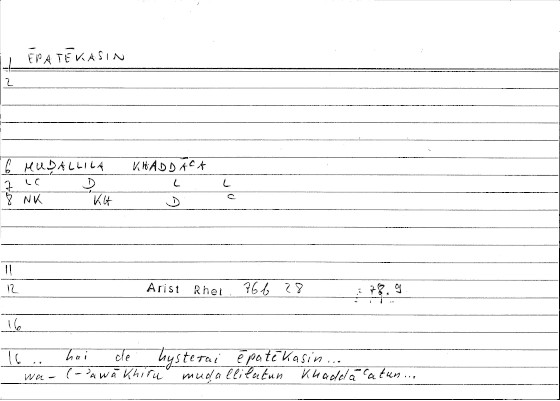 1 ĒPATĒKASIN
2
6 MUḌALLILA KHADDĀᶜA
7 LC Ḍ L L
8 NK KH D C
11
12 Arist Rhet 76b 28 : 78.9
16
16 .. hai de hysterai ēpatēkasin...
wa- l-ʾawākhiru muḍallilatun khaddāᶜatun...